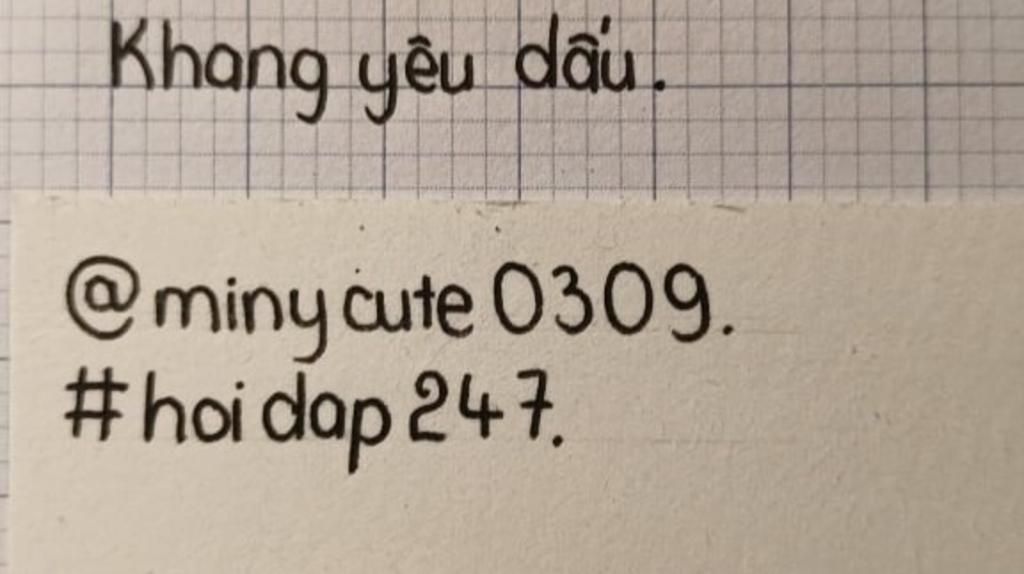 Khang yêu dấu.
@minycute0309.
#hoidap247.